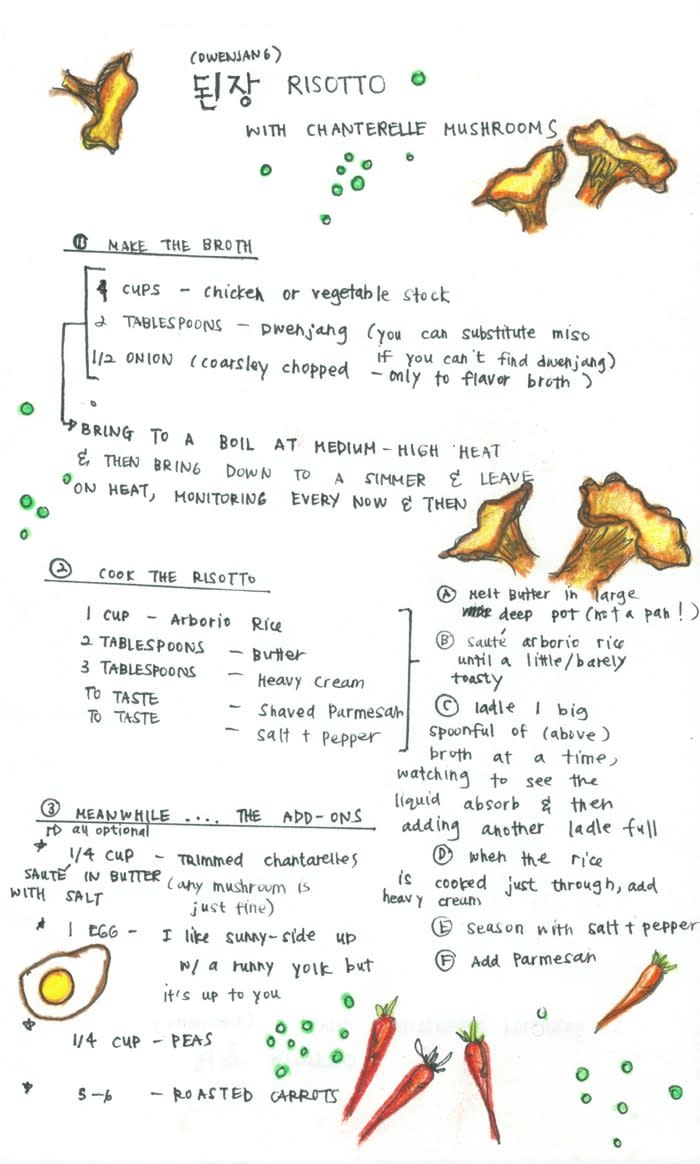 (DWENJANG)
된장 RISOTTO
WITH CHANTERELLE MUSHROOMS
① MAKE THE BROTH
4 CUPS - chicken or vegetable stock
2 TABLESPOONS - Dwenjang (you can substitute miso
if you can't find dwenjang)
1/2 ONION (coarsley chopped - only to flavor broth)
BRING TO A BOIL AT MEDIUM-HIGH HEAT
& THEN BRING DOWN TO A SIMMER & LEAVE
ON HEAT, MONITORING EVERY NOW & THEN
② COOK THE RISOTTO
1 CUP - Arborio Rice
2 TABLESPOONS - Butter
3 TABLESPOONS - Heavy Cream
TO TASTE - Shaved Parmesan
TO TASTE - Salt + Pepper
Ⓐ Melt Butter in large
deep pot (not a pan!)
Ⓑ sauté arborio rice
until a little/barely
toasty
Ⓒ ladle 1 big
spoonful of (above)
broth at a time,
watching to see the
liquid absorb & then
adding another ladle full
Ⓓ when the rice
is cooked just through, add
heavy cream
Ⓔ Season with salt + pepper
Ⓕ Add Parmesan
③ MEANWHILE .... THE ADD-ONS
all optional
* 1/4 CUP - Trimmed chantarelles
SAUTÉ IN BUTTER (any mushroom is
WITH SALT just fine)
* 1 EGG - I like sunny-side up
w/ a runny yolk but
it's up to you
* 1/4 CUP - PEAS
* 5-6 - ROASTED CARROTS